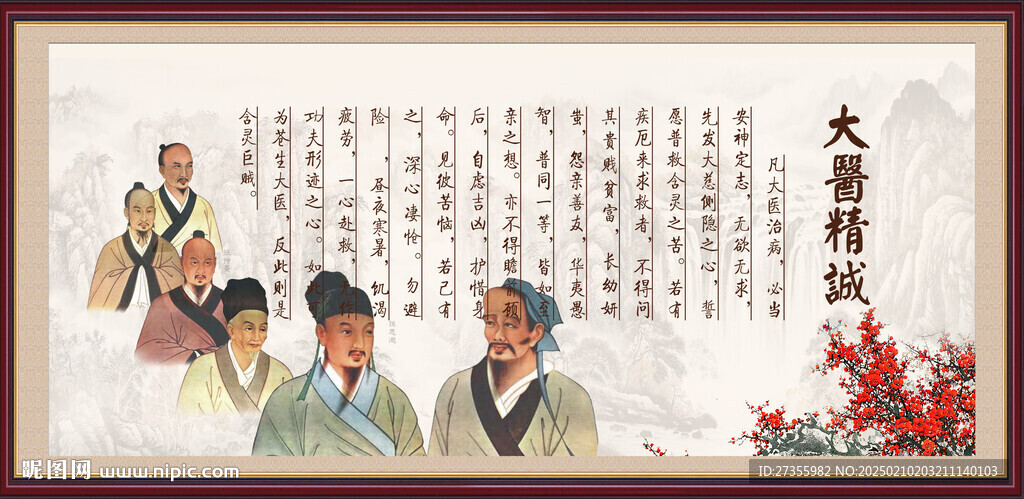 大醫精誠
凡大医治病，必当
安神定志，无欲无求，
先发大慈恻隐之心，誓
愿普救含灵之苦。若有
疾厄来求救者，不得问
其贵贱贫富，长幼妍
蚩，怨亲善友，华夷愚
智，普同一等，皆如至
亲之想。亦不得瞻前顾
后，自虑吉凶，护惜身
命。见彼苦恼，若己有
之，深心凄怆。勿避
险 ，昼夜寒暑，饥渴
疲劳，一心赴救，无作
功夫形迹之心。如此可
为苍生大医，反此则是
含灵巨贼。
孙思邈
昵图网 www.nipic.com
ID:27355982 NO:20250210203211140103